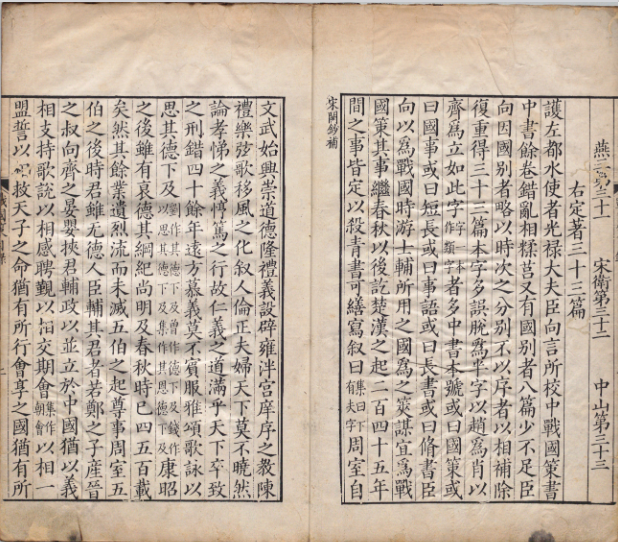 燕三第三十一　宋衛第三十二　中山第三十三
右定著三十三篇
護左都水使者光禄大夫臣向言所校中戰國策書
中書餘卷錯亂相糅莒又有國別者八篇少不足臣
向因國別者略以時次之分別不以序者以相補除
復重得三十三篇本字多誤脫爲半字以趙爲肖以
齊爲立如此字一本字作類字者多中書本號或曰國策或
曰國事或曰短長或曰事語或曰長書或曰脩書臣
向以爲戰國時游士輔所用之國爲之筴謀宜爲戰
國策其事繼春秋以後訖楚漢之起二百四十五年
間之事皆定以殺青書可繕寫叙曰集曰下有夫字周室自
宋闕鈔補
文武始興崇道德隆禮義設辟雍泮宮庠序之教陳
禮樂弦歌移風之化叙人倫正夫婦天下莫不曉然
論孝悌之義惇篤之行故仁義之道滿乎天下卒致
之刑錯四十餘年遠方慕義莫不賓服雅頌歌詠以
思其德下及劉作其德下及曾作德下及錢作以思其德下及集作其恩德下及康昭
之後雖有衰德其綱紀尚明及春秋時已四五百載
矣然其餘業遺烈流而未滅五伯之起尊事周室五
伯之後時君雖无德人臣輔其君者若鄭之子產晉
之叔向齊之晏嬰挾君輔政以並立於中國猶以義
相支持歌說以相感聘覲以相交期會集作朝會以相一
盟誓以相救天子之命猶有所行會享之國猶有所